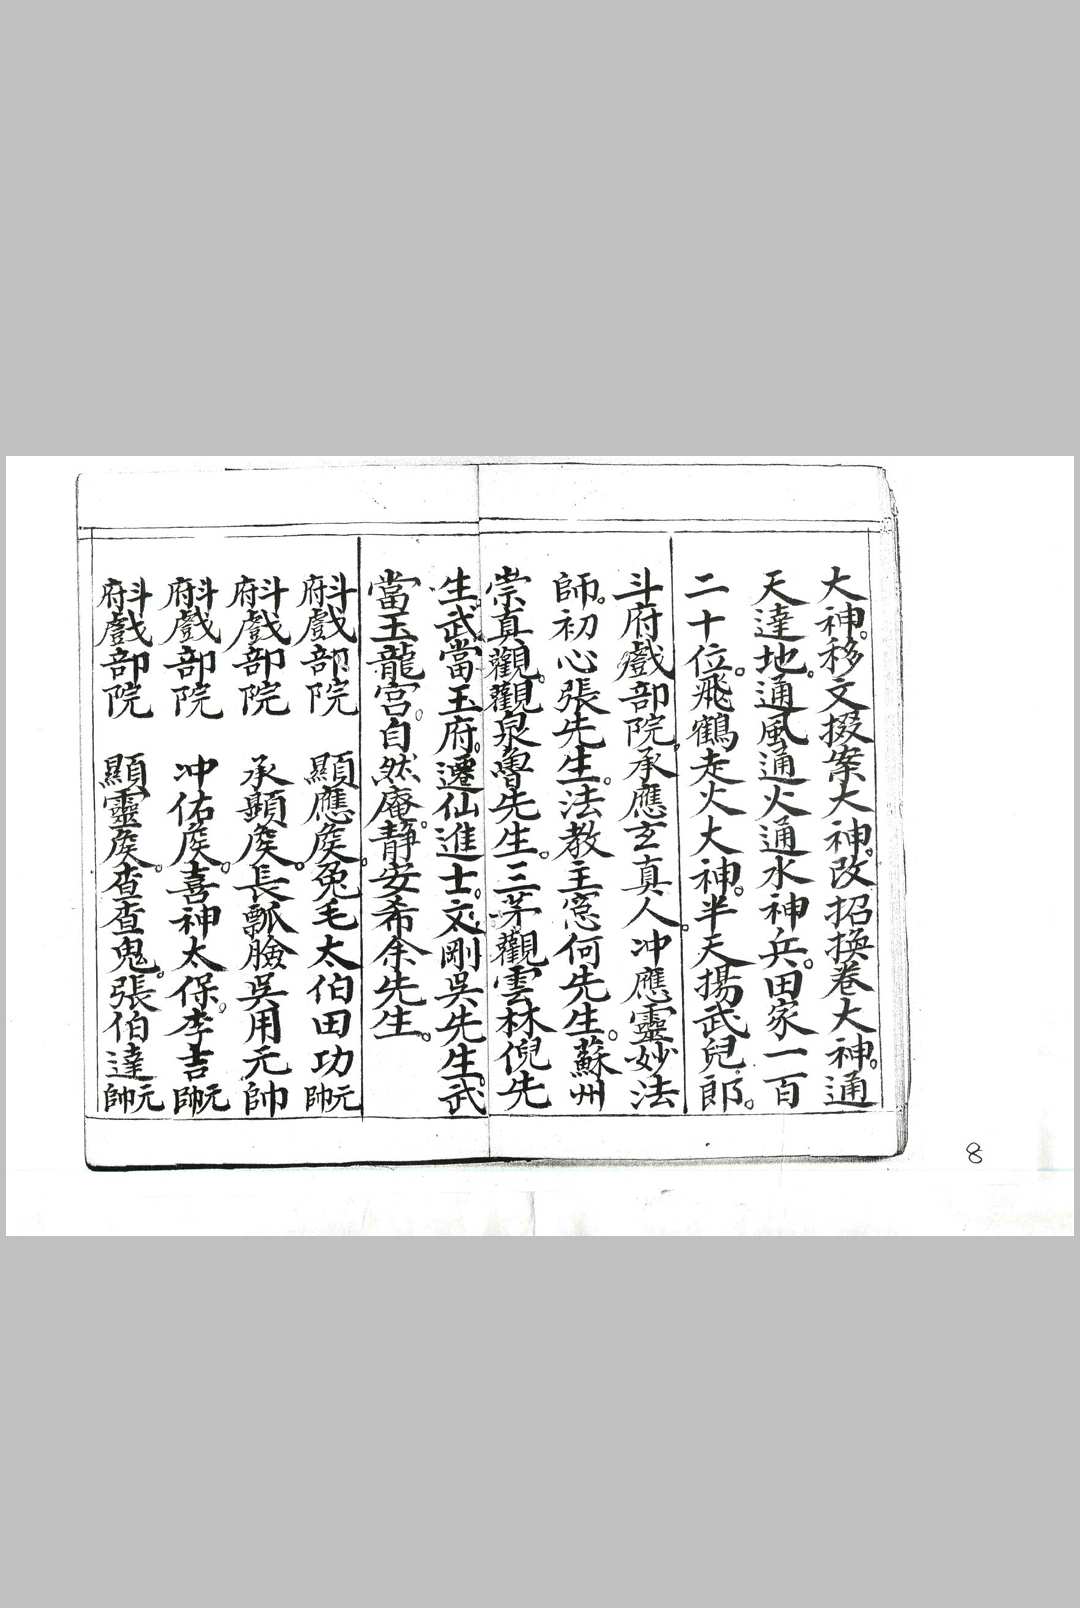 大神。移文掇案大神。改招換卷大神。通
天達地。通風通火通水神兵。田家一百
二十位。飛鶴走火大神。半天揚武兒郎。
斗府戲部院。承應玄真人。冲應靈妙法
師。初心張先生。法教主窓何先生。蘇州
崇真觀。觀泉魯先生。三茅觀雲林倪先
生。武當玉府。遷仙進士。文剛吳先生。武
當玉龍宮。自然庵。静安希余先生。
斗府戲部院 顯應矦。兔毛太伯田功元帥
斗府戲部院 承顯矦。長瓢臉吳用元帥
斗府戲部院 冲佑矦。喜神太保。李吉元帥
斗府戲部院 顯靈矦。查查鬼。張伯達元帥
8